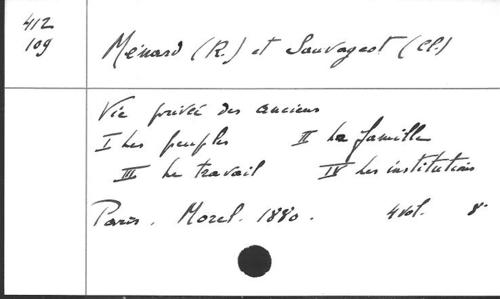 412
109
Ménard (R.) et Sauvageot (Cl.)
Vie privée des anciens
I Les peuples II La famille
III Le travail IV Les institutions
Paris. Morel. 1880. 4 vol. 8°